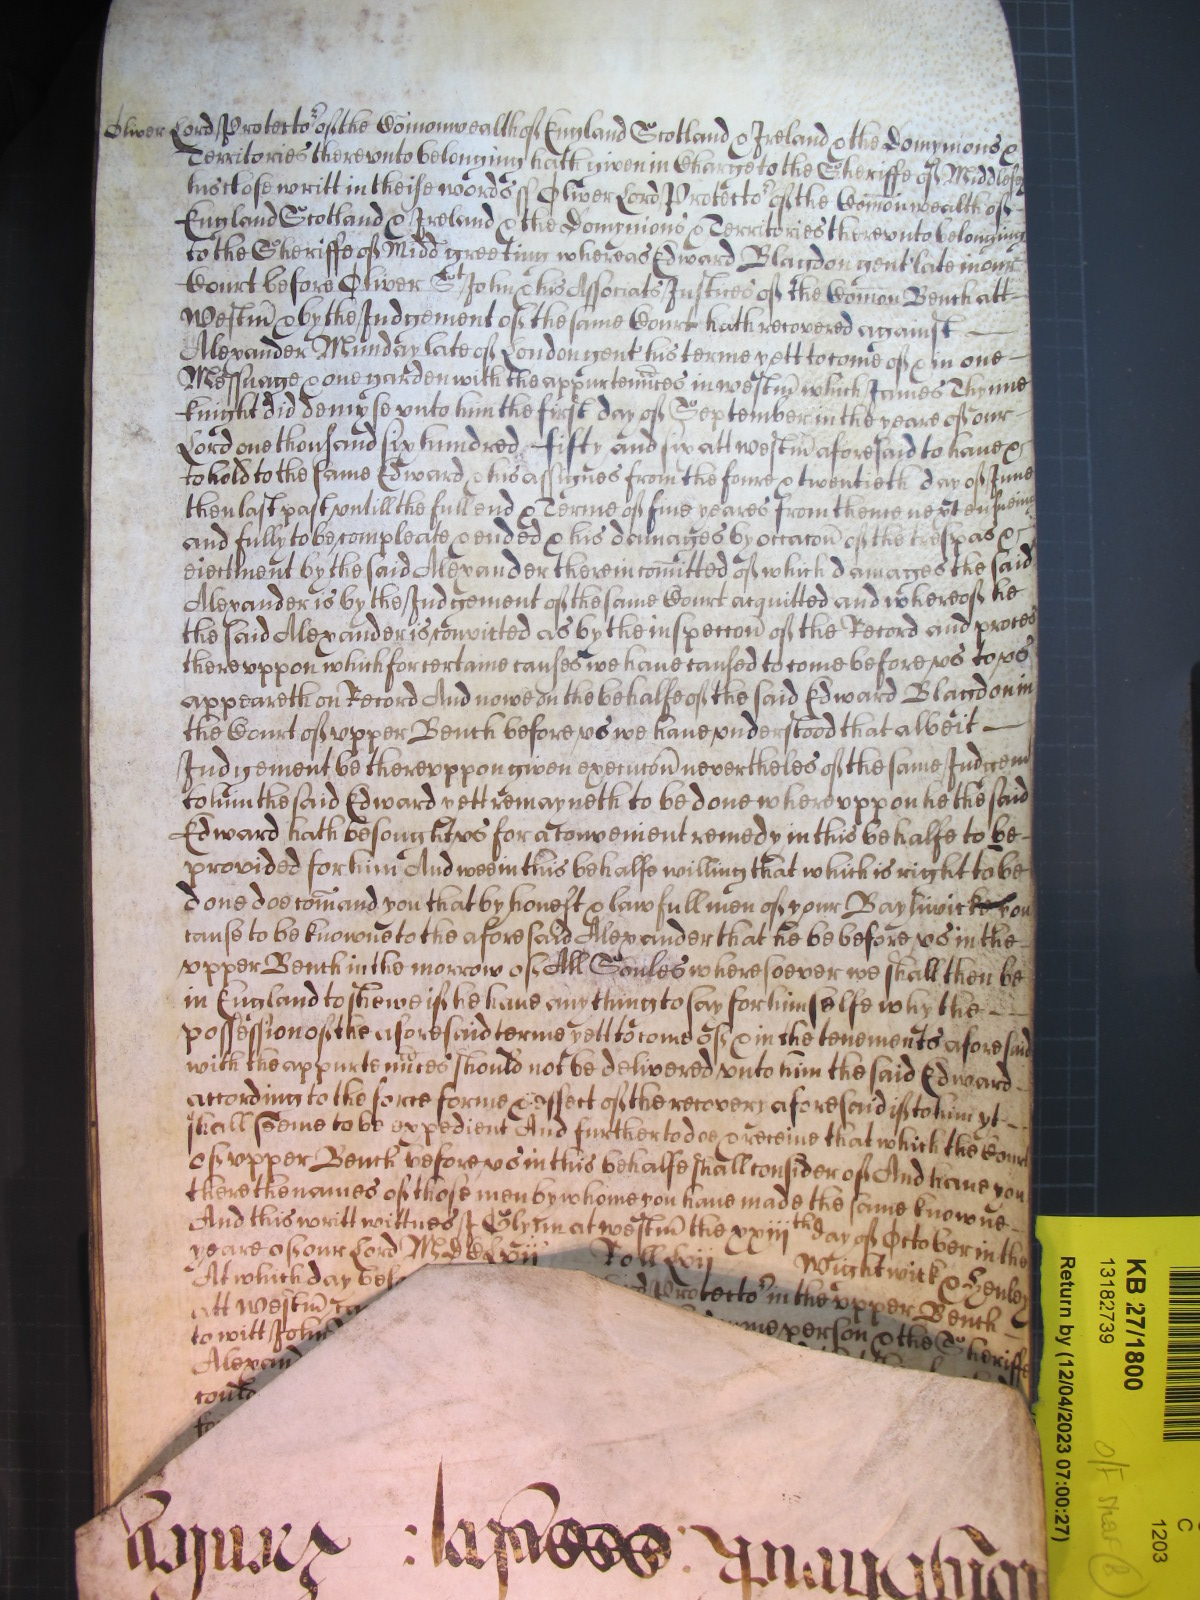 Oliver Lord Protector of the Com̄onwealth of England Scotland & Ireland & the Domynions &
Territories therevnto belonging hath given in Charge to the Sheriffe of Middlesex
his close writt in theise words ss Oliver Lord Protector of the Com̄onwealth of
England Scotland & Ireland & the Domynions & Territories therevnto belonging
to the Sheriffe of Midd greeting whereas Edward Blagdon gent late in our
Court before Oliver St John & his Associats Justices of the Com̄on Bench att
Westm̄ & by the Judgement of the same Court hath recovered against
Alexander Munday late of London gent his terme yett to come of & in one
Messuage & one garden with the appurtenn̄ces in Westm̄ which James Thynne
knight did demyse vnto him the first day of September in the yeare of our
Lord one thousand six hundred fifty and six att Westm̄ aforesaid to haue &
to hold to the same Edward & his assignes from the foure & twentieth day of June
then last past vntill the full end & Terme of fiue yeares from thence next ensueing
and fully to be compleate & ended & his damages by occac̄on of the trespas &
eiectment by the said Alexander therein com̄itted of which damages the said
Alexander is by the Judgement of the same Court acquitted and whereof he
the said Alexander is convicted as by the inspecc̄on of the Record and proces
therevppon which for certaine causes we haue caused to come before vs to vs
appeareth on Record And nowe on the behalfe of the said Edward Blagdon in
the Court of vpper Bench before vs we haue vnderstood that albeit
Judgement be therevppon given execuc̄on nevertheles of the same Judgem
to him the said Edward yett remayneth to be done wherevppon he the said
Edward hath besought vs for a convenient remedy in this behalfe to be
provided for him And wee in this behalfe willing that which is right to be
done doe com̄and you that by honest & lawfull men of your Bayliwick you
cause to be knowne to the aforesaid Alexander that he be before vs in the
vpper Bench in the morrow of All Soules wheresoever we shall then be
in England to shewe if he haue any thing to say for himselfe why the
possession of the aforesaid terme yett to come of & in the tenements aforesaid
with the appurtenn̄ces should not be delivered vnto him the said Edward
according to the force forme & effect of the recovery aforesaid if to him yt
shall seeme to be expedient And further to doe & receiue that which the Court
of vpper Bench before vs in this behalfe shall consider of And haue you
there the names of those men by whome you haue made the same knowne
And this writt wittnes J Glynn at Westm̄ the xxiijth day of October in the
yeare of our Lord MDCLvij Roll Lvij Wightwick & Henley
At which day bef Protector in the vpper Bench
att Westm̄ me person & the Sheriffe
to witt John
Alexand
could
KB 27/1800
13182739
Return by (12/04/2023 07:00:27)
C
1203